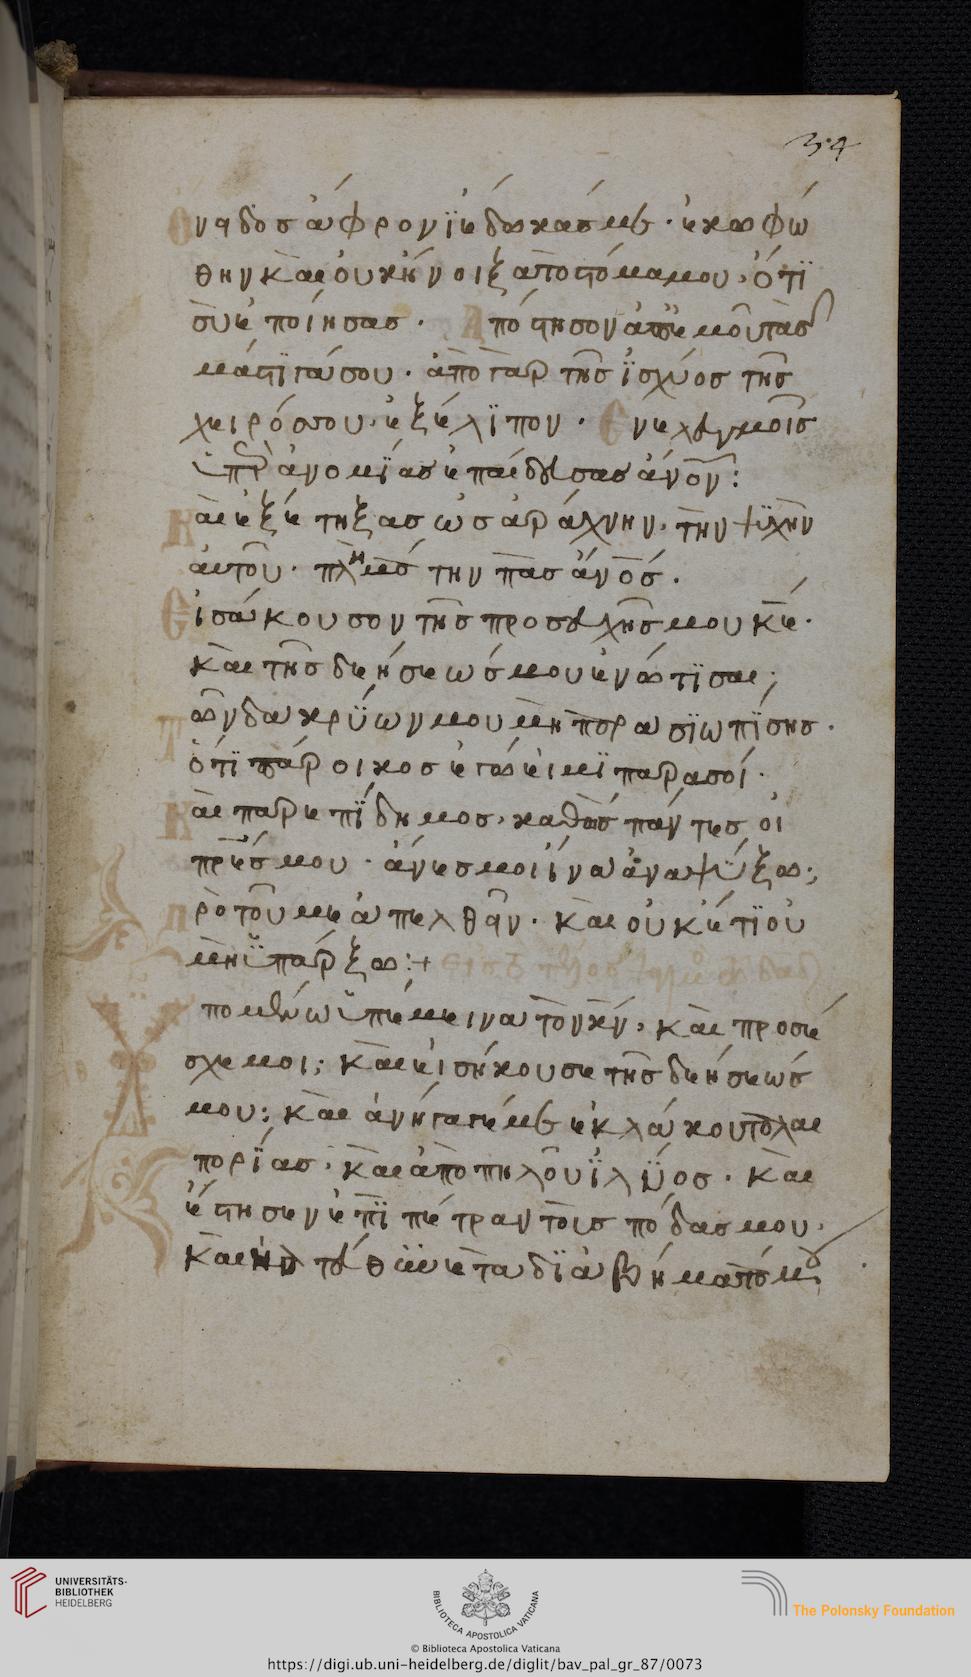 34
Ὄνηδος ἄφρονϊ ἔδωκάς με. ἐκωφώ
θην καὶ οὐκ ἤνοιξα τὸ στόμα μου, ὅτϊ
σὺ ἐποίησας. Ἀπόστησον ἀπ' ἐμοῦ τὰς
μάστϊγάς σου. ἀπὸ γὰρ τῆς ἰσχύος τῆς
χειρός σου. ἐξέλϊπον. Ἐν ἐλεγμοῖς
ὑπὲρ ἀνομϊας ἐπαίδευσας ἄνον:
Καὶ ἐξέτηξας ὡς ἀράχνην. τὴν ψϋχὴν
αὐτοῦ. πλὴν μάτην πᾶς ἄνος.
Εἰσάκουσον τῆς προσευχῆς μου κε.
καὶ τῆς δεήσεώς μου ἐνώτϊσαι;
Τῶν δακρϋων μου μὴ παρασϊωπϊσης.
ὅτϊ πάροικος ἐγώ εἰμϊ παρὰ σοί.
Καὶ παρεπϊδημος. καθὼς πάντες οἱ
πρες μου. ἄνες μοι ἵνα ἀναψϋξω;
Πρὸ τοῦ με ἀπελθῆν. καὶ οὐκέτϊ οὐ
μὴ ὑπάρξω:+ εἰς τὸ τέλος ψαλμὸς τῷ δαδ
Ὑπομένων ὑπέμεινα τὸν κν, καὶ προσέ
σχε μοι; καὶ εἰσήκουσε τῆς δεήσεώς
μου: καὶ ἀνήγαγέ με ἐκ λάκου ταλαι
πορϊας. καὶ ἀπὸ πηλοῦ ϊλϋος. καὶ
ἔστησεν ἐπϊ πέτραν τοὺς πόδας μου.
καὶ κατεύθϋνε τὰ δϊαβήματά μου
UNIVERSITÄTS-
BIBLIOTHEK
HEIDELBERG
BIBLIOTECA APOSTOLICA VATICANA
The Polonsky Foundation
© Biblioteca Apostolica Vaticana
https://digi.ub.uni-heidelberg.de/diglit/bav_pal_gr_87/0073